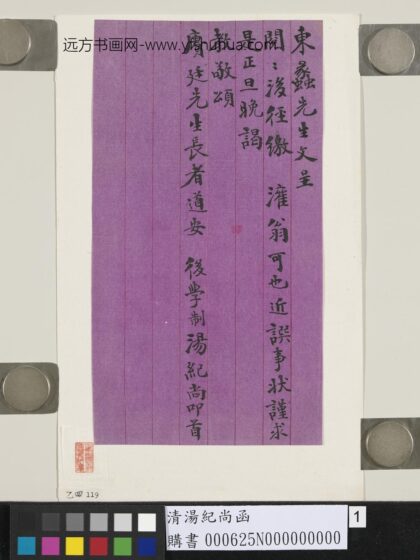 远方书画网-www.yishuhua.com
東蠡先生文呈
閱〻後徑繳 漼翁可也近譔事狀謹求
是正旦晚謁
教敬頌
廣廷先生長者道安 後學制湯紀尚叩首
乙四 119
清湯紀尚函
購書 000625N000000000
1